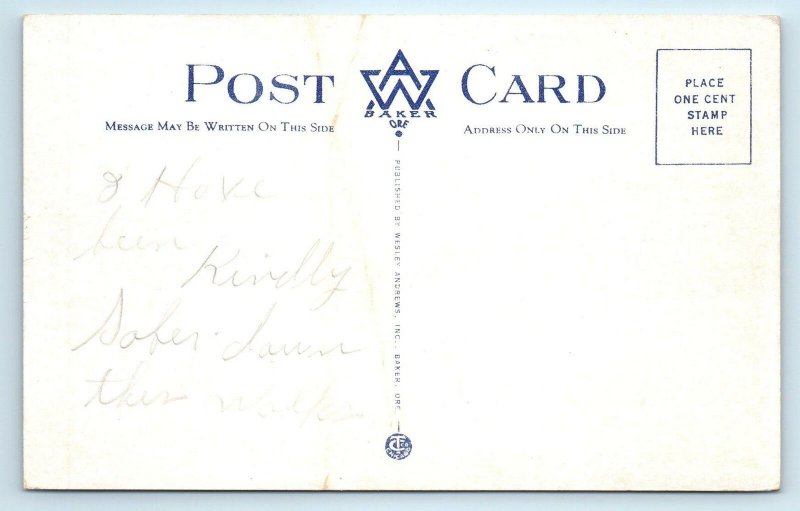 POST CARD
AW
BAKER
ORE
MESSAGE MAY BE WRITTEN ON THIS SIDE
ADDRESS ONLY ON THIS SIDE
PLACE
ONE CENT
STAMP
HERE
PUBLISHED BY WESLEY ANDREWS, INC., BAKER, ORE.
I Have
been
Kindly
Sober down
this